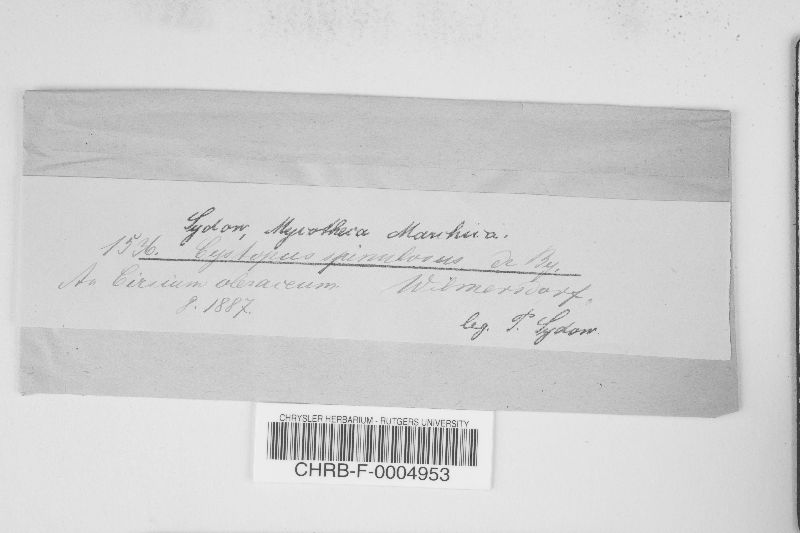 Sydow, Mycotheca Marchica.
1536. Cystopus spinulosus de By.
An Cirsium oleraceum Wilmersdorf.
8. 1887.
leg. P. Sydow.
CHRYSLER HERBARIUM - RUTGERS UNIVERSITY
CHRB-F-0004953